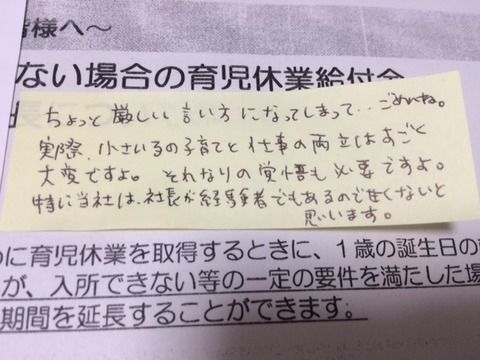 様へ～
ない場合の育児休業給付金
ちょっと厳しい言い方になってしまって...ごめんね。
実際、小さいるの子育てと仕事の両立はすごく
大変ですよ。それなりの覚悟も必要ですよ。
特に当社は、社長が経験者でもあるので甘くないと
思います。
に育児休業を取得するときに、1歳の誕生日の
が、入所できない等の一定の要件を満たした場
期間を延長することができます。